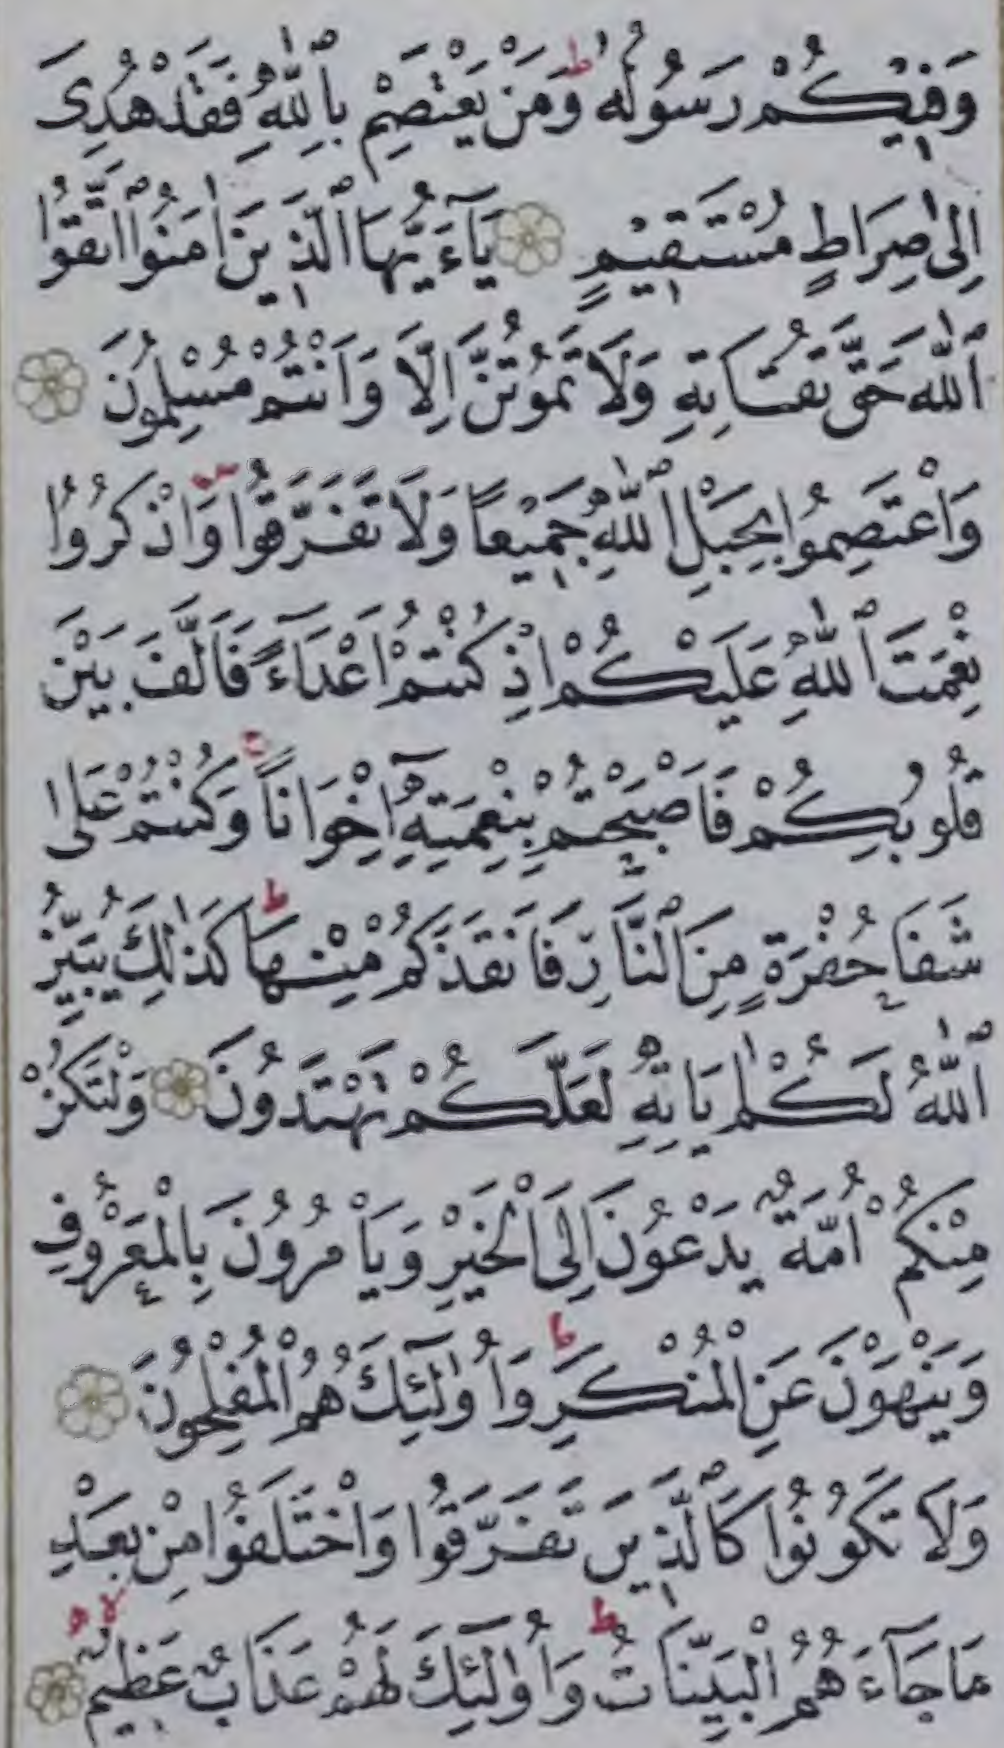 وَفِيْكُمْ رَسُوْلُهٗ ؕ وَمَنْ يَّعْتَصِمْ بِاللّٰهِ فَقَدْ هُدِىَ
اِلٰى صِرَاطٍ مُّسْتَقِيْمٍ ۞ يٰٓاَيُّهَا الَّذِيْنَ اٰمَنُوا اتَّقُوا
اللّٰهَ حَقَّ تُقٰتِهٖ وَلَا تَمُوْتُنَّ اِلَّا وَاَنْتُمْ مُّسْلِمُوْنَ ۞
وَاعْتَصِمُوْا بِحَبْلِ اللّٰهِ جَمِيْعًا وَّلَا تَفَرَّقُوْا ۪ وَاذْكُرُوْا
نِعْمَتَ اللّٰهِ عَلَيْكُمْ اِذْ كُنْتُمْ اَعْدَآءً فَاَلَّفَ بَيْنَ
قُلُوْبِكُمْ فَاَصْبَحْتُمْ بِنِعْمَتِهٖٓ اِخْوَانًا ۚ وَكُنْتُمْ عَلٰى
شَفَا حُفْرَةٍ مِّنَ النَّارِ فَاَنْقَذَكُمْ مِّنْهَا ؕ كَذٰلِكَ يُبَيِّنُ
اللّٰهُ لَكُمْ اٰيَاتِهٖ لَعَلَّكُمْ تَهْتَدُوْنَ ۞ وَلْتَكُنْ
مِّنْكُمْ اُمَّةٌ يَّدْعُوْنَ اِلَى الْخَيْرِ وَيَاْمُرُوْنَ بِالْمَعْرُوْفِ
وَيَنْهَوْنَ عَنِ الْمُنْكَرِ ؕ وَاُولٰٓئِكَ هُمُ الْمُفْلِحُوْنَ ۞
وَلَا تَكُوْنُوْا كَالَّذِيْنَ تَفَرَّقُوْا وَاخْتَلَفُوْا مِنْۢ بَعْدِ
مَا جَآءَهُمُ الْبَيِّنَاتُ ؕ وَاُولٰٓئِكَ لَهُمْ عَذَابٌ عَظِيْمٌ ۞